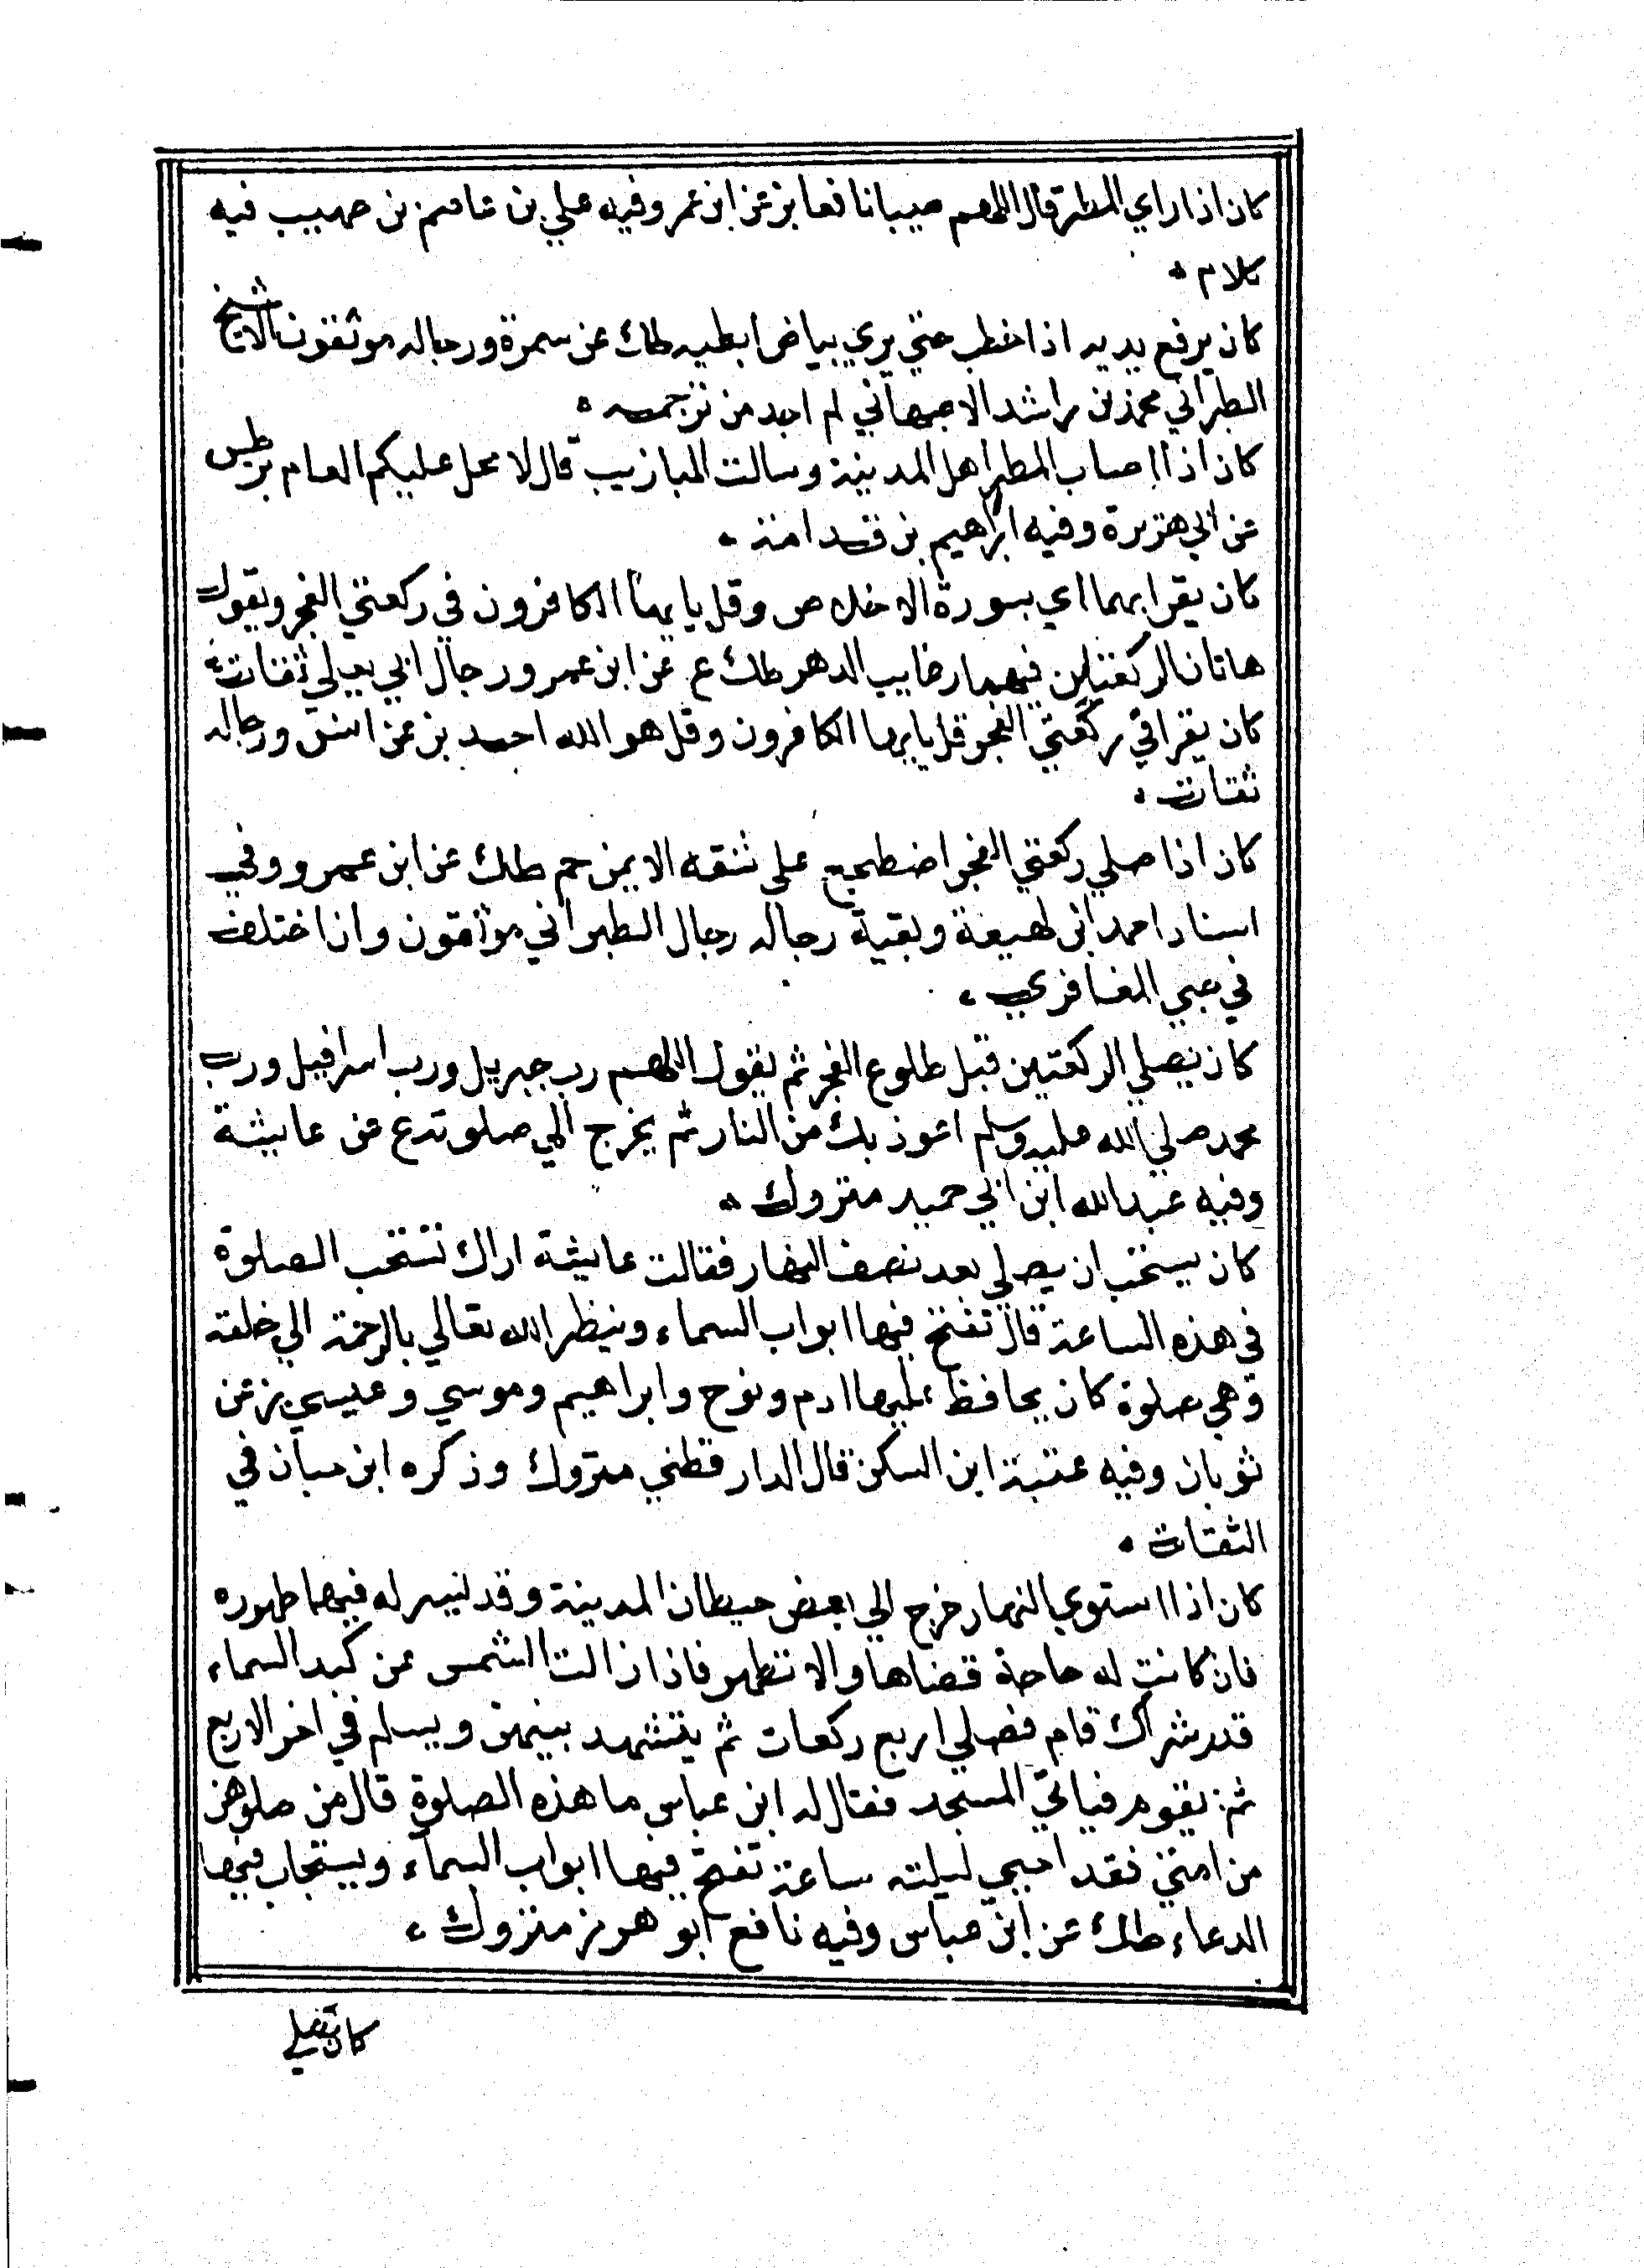 كان اذا راي المطر قال اللهم صيبا نافعا بز عن ابن عمر وفيه علي بن عاصم بن صهيب فيه
كلام
كان يرفع يديه اذا خطب حتي يري بياض ابطيه طك عن سمرة ورجاله موثقون الا شيخ
الطبراني محمد بن راشد الاصبهاني لم اجد من ترجمه
كان اذا اصاب المطر اهل المدينة وسالت الميازيب قال لا محل عليكم العام بز طس
عن ابي هريرة وفيه ابراهيم بن قدامة
كان يقرا بهما اي بسورة الاخلاص وقل يا يها الكافرون في ركعتي الفجر ويقول
هاتان الركعتان فيهما رغايب الدهر طك ع عن ابن عمر ورجال ابي يعلي ثقات
كان يقرا في ركعتي الفجر قل يا يها الكافرون وقل هو الله احد بز عن انس ورجاله
ثقات
كان اذا صلي ركعتي الفجر اضطجع علي شقه الايمن حم طك عن ابن عمرو وفي
اسناد احمد ابن لهيعة وبقية رجاله رجال الطبراني موثقون وان اختلف
في حيي المعافري
كان يصلي الركعتين قبل طلوع الفجر ثم يقول اللهم رب جبريل ورب اسرافيل ورب
محمد صلي الله عليه وسلم اعوذ بك من النار ثم يخرج الي صلوته ع عن عايشة
وفيه عبد الله ابن ابي حميد متروك
كان يستحب ان يصلي بعد نصف النهار فقالت عايشة اراك تستحب الصلوة
في هذه الساعة قال تفتح فيها ابواب السماء وينظر الله تعالي بالرحمة الي خلقه
وهي صلوة كان يحافظ عليها ادم ونوح وابراهيم وموسي وعيسي بز عن
ثوبان وفيه عتبة ابن السكن قال الدار قطني متروك وذكره ابن حبان في
الثقات
كان اذا استوي النهار خرج الي بعض حيطان المدينة وقد تيسر له فيها طهوره
فان كانت له حاجة قضاها والا تطهر فاذا زالت الشمس عن كبد السماء
قدر شراك قام فصلي اربع ركعات ثم يتشهد بينهن ويسلم في اخر الاربع
ثم يقوم فياتي المسجد فقال له ابن عباس ما هذه الصلوة قال من صلوهن
من امتي فقد احيي ليلته ساعة تفتح فيها ابواب السماء ويستجاب فيها
الدعاء طك عن ابن عباس وفيه نافع ابو هرمز متروك
كان يصلي